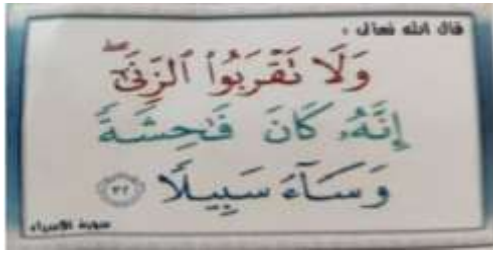 قال الله تعالى :
وَلَا تَقْرَبُوا۟ ٱلزِّنَىٰٓ ۖ
إِنَّهُۥ كَانَ فَـٰحِشَةً
وَسَآءَ سَبِيلًا ٣٢
سورة الإسراء